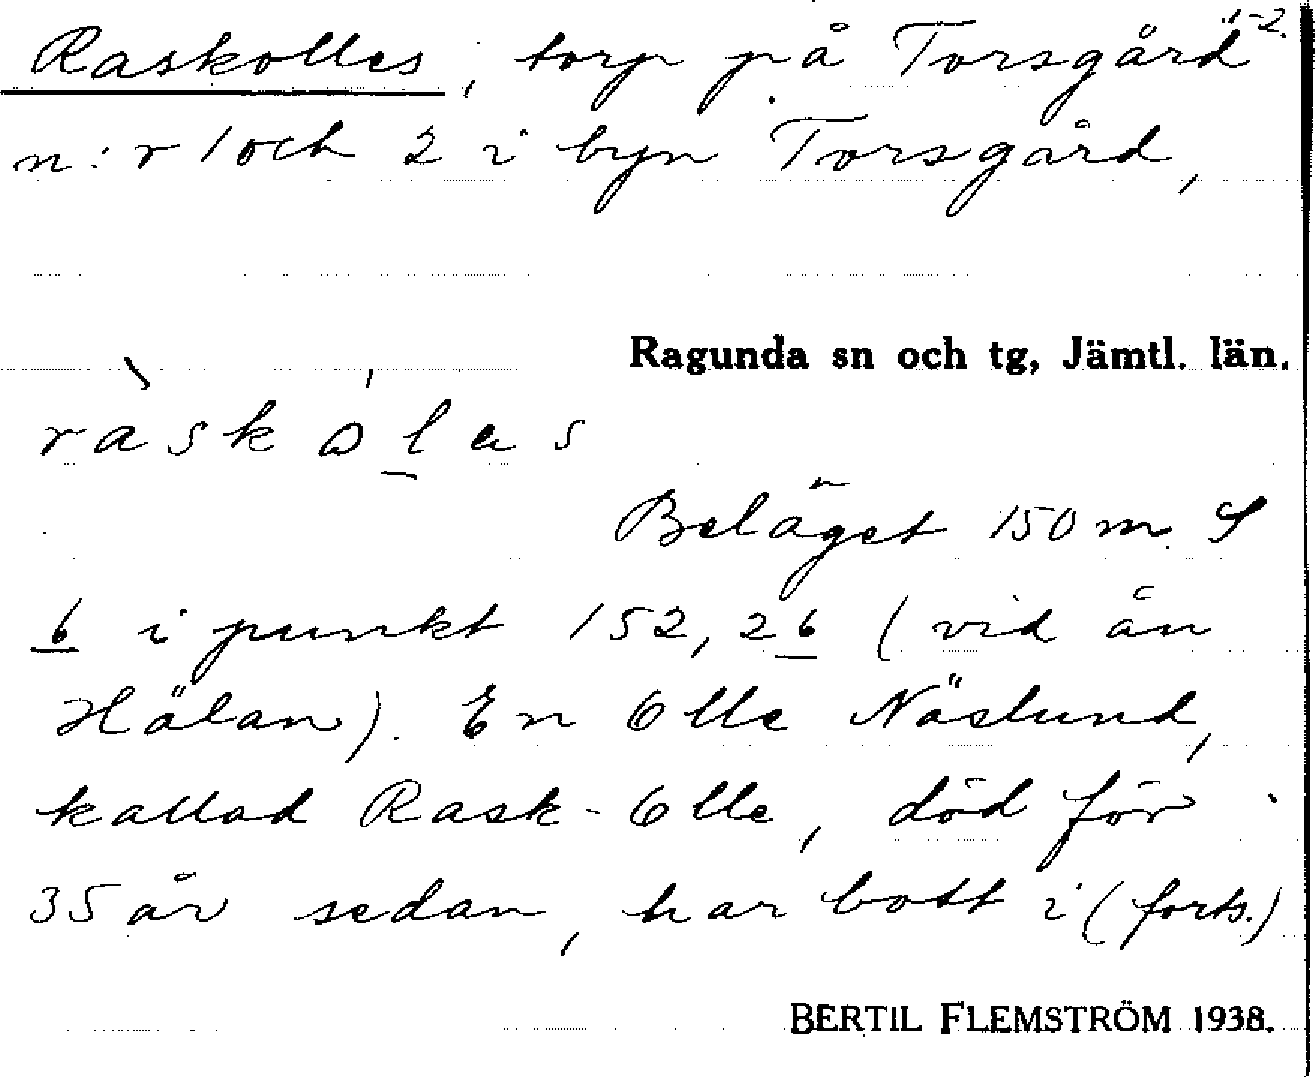 Raskolles, torp på Torsgård 1-2.
n:r 1 och 2 i byn Torsgård,
Ragunda sn och tg, Jämtl. län.
ràskólas
Beläget 150 m
6 i punkt 152,26 (vid ån
Hälan). En Olle Näslund,
kallad Rask-Olle, död för
35 år sedan, har bott i (forts.)
BERTIL FLEMSTRÖM 1938.